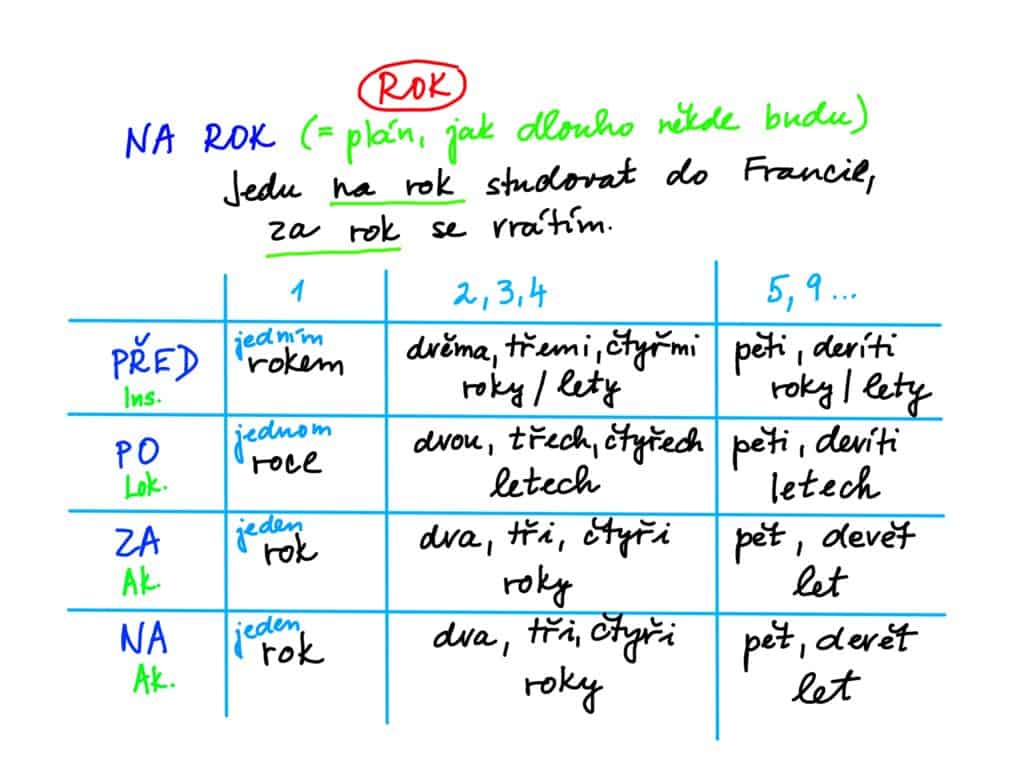 ROK
NA ROK (= plán, jak dlouho někde budu)
Jedu na rok studovat do Francie,
za rok se vrátím.
1 2, 3, 4 5, 9...
PŘED jedním dvěma, třemi, čtyřmi pěti, devíti
Ins. rokem roky / lety roky / lety
PO jednom dvou, třech, čtyřech pěti, devíti
Lok. roce letech letech
ZA jeden dva, tři, čtyři pět, devět
Ak. rok roky let
NA jeden dva, tři, čtyři pět, devět
Ak. rok roky let